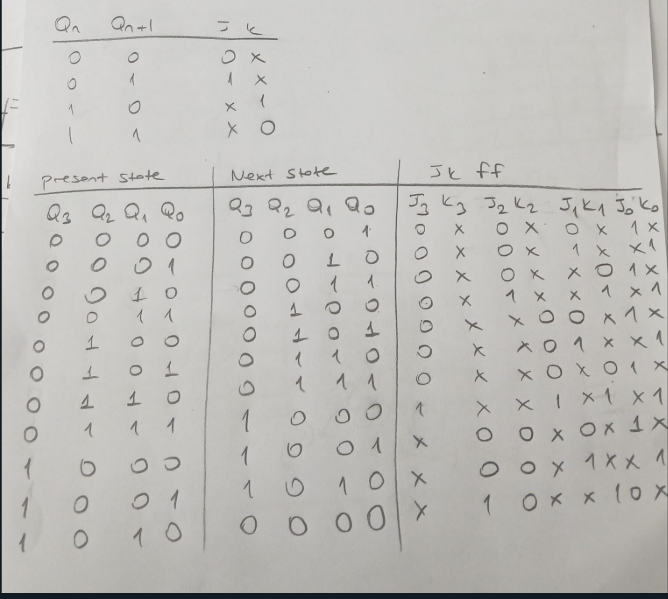 Qn Qn+1 J K
0 0 0 x
0 1 1 x
1 0 x 1
1 1 x 0
Present state Next state Jk ff
Q3 Q2 Q1 Q0 Q3 Q2 Q1 Q0 J3 K3 J2 K2 J1 K1 J0 K0
0 0 0 0 0 0 0 1 0 x 0 x 0 x 1 x
0 0 0 1 0 0 1 0 0 x 0 x 1 x x 1
0 0 1 0 0 0 1 1 0 x 0 x x 0 1 x
0 0 1 1 0 1 0 0 0 x 1 x x 1 x 1
0 1 0 0 0 1 0 1 0 x x 0 0 x 1 x
0 1 0 1 0 1 1 0 0 x x 0 1 x x 1
0 1 1 0 0 1 1 1 0 x x 0 x 0 1 x
0 1 1 1 1 0 0 0 1 x x 1 x 1 x 1
1 0 0 0 1 0 0 1 x 0 0 x 0 x 1 x
1 0 0 1 1 0 1 0 x 0 0 x 1 x x 1
1 0 1 0 0 0 0 0 x 1 0 x x 1 0 x